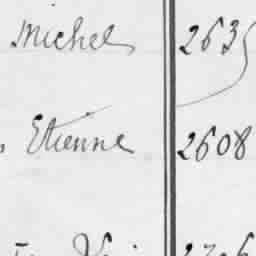 Michel 2635
Etienne 2608